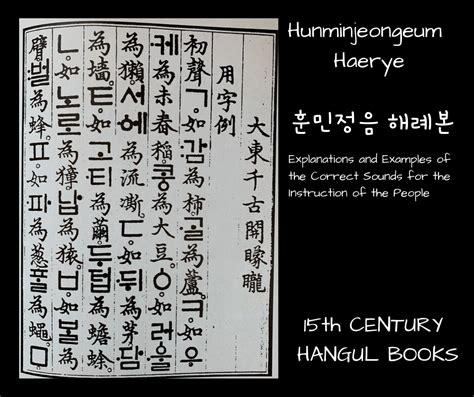 Hunminjeongeum
Haerye
훈민정음 해례본
Explanations and Examples of
the Correct Sounds for the
Instruction of the People
15th CENTURY
HANGUL BOOKS
大東千古開矇矓
用字例
初聲ㄱ如감為柿ᄀᆞᆯ為蘆ㅋ如우
케為未舂稻콩為大豆ㆁ如러ᅌᅮᆯ
為獺서ᅌᅦ為流凘ㄷ如뒤為茅담
為墻ㅌ如고티為繭두텁為蟾蜍
ㄴ如노로為獐납為猿ㅂ如ᄇᆞᆯ為
臂벌為蜂ㅍ如파為葱ᄑᆞᆯ為蠅ㅁ